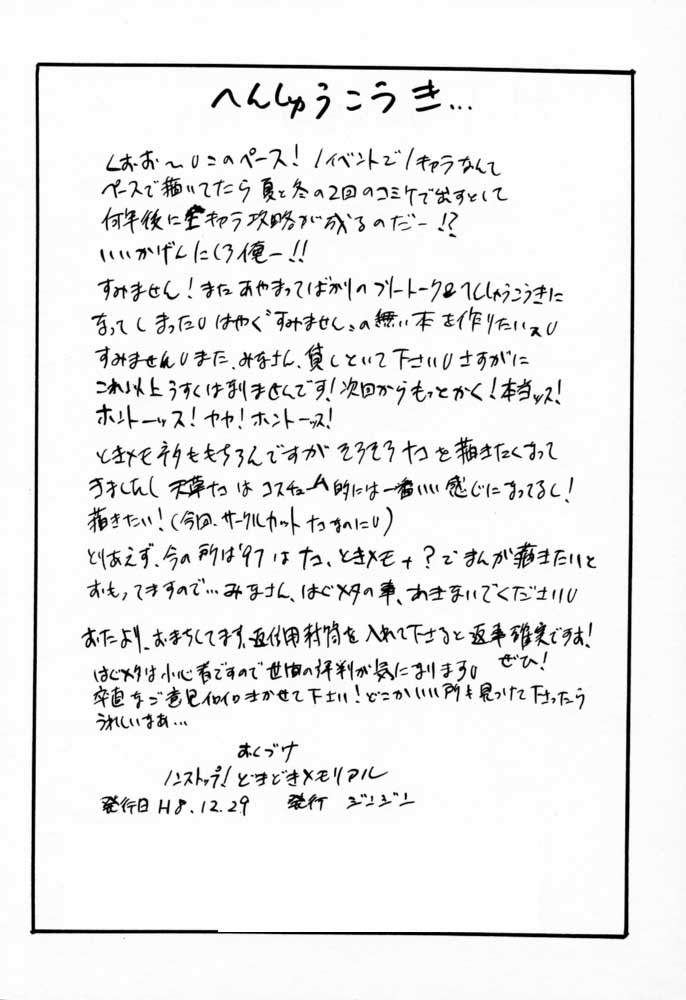 へんしゅうこうき…
くおお〜このペース！1イベントで1キャラなんて
ペースで描いてたら夏と冬の2回のコミケで出すとして
何年後に全キャラ攻略が成るのだー!?
いいかげんにしろ俺ー!!
すみません！またあやまってばかりのフリートーク&へんしゅうこうきに
なってしまった はやく"すみません"の無い本を作りたいっス
すみません また、みなさん、貸しといて下さい さすがに
これ以上うすくはなりませんです！次回からもっとかく！本当ッス！
ホントーッス！ヤヤ！ホントーッス！
ときメモネタももちろんですがそろそろナコを描きたくなって
きましたし天草ナコはコスチューム的には一番いい感じになってるし！
描きたい！(今回、サークルカットナコなのに)
とりあえず、今の所は'97はナコ、ときメモ+？でまんが描きたいと
おもってますので…みなさん、はじメタの事、あきないでください
おたより、おまちしてます、返信用封筒を入れて下さると返事確実ですよ！
ぜひ！
はじメタは小心者ですので世間の評判が気になります
卒直なご意見イロイロきかせて下さい！どこかいい所も見つけて下さったら
うれしいなぁ…
おくづけ
ノンストップ！どきどきメモリアル
発行日 H8.12.29 発行 ジンジン